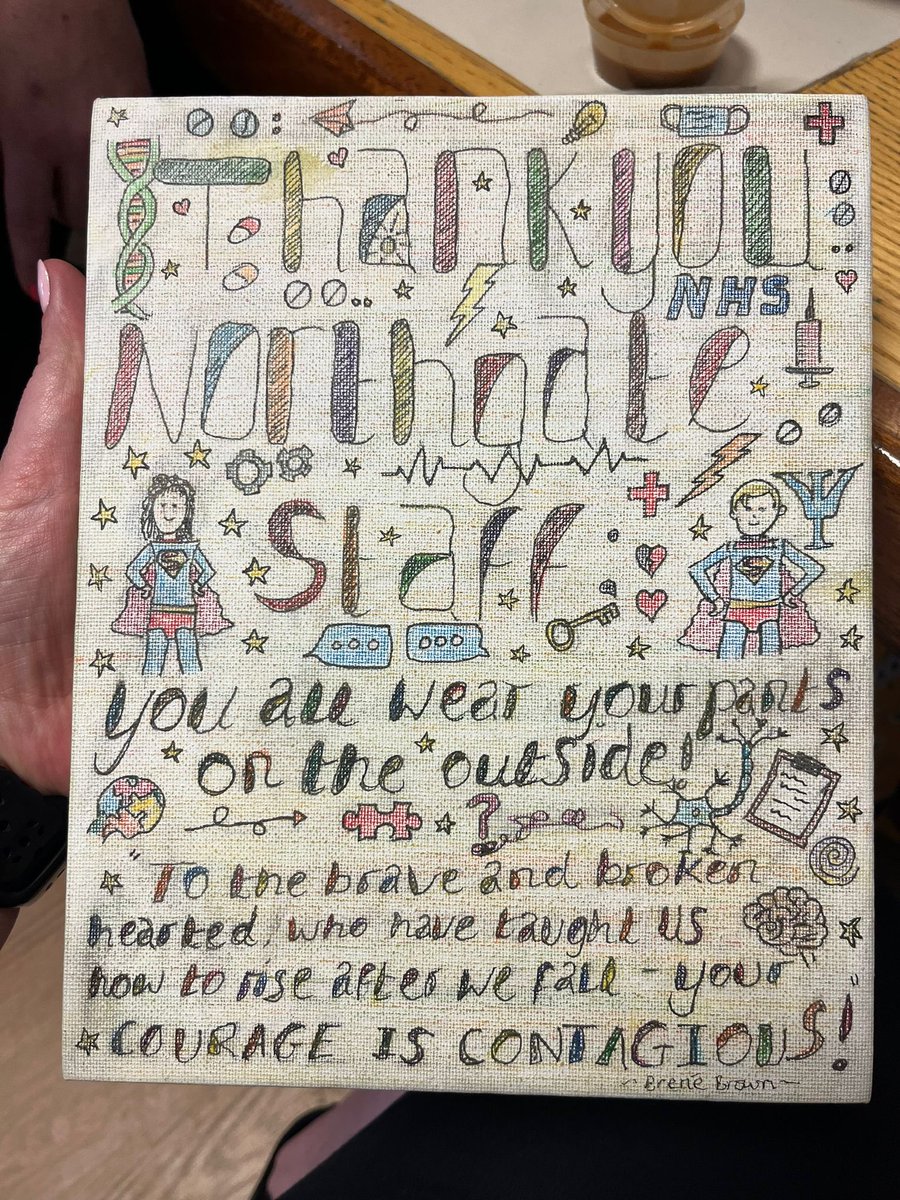 Thank you
NHS
Northgate
Staff
you all wear your pants
on the outside!
"To the brave and broken
hearted, who have taught us
how to rise after we fall - your
COURAGE IS CONTAGIOUS!"
~ Brené Brown ~